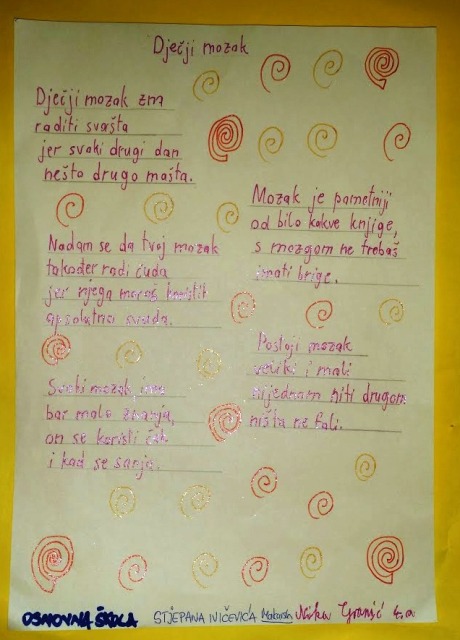 Dječji mozak
Dječji mozak zna
raditi svašta
jer svaki drugi dan
nešto drugo mašta.
Nadam se da tvoj mozak
također radi čuda
jer njega moraš koristit
apsolutno svuda.
Svaki mozak ima
bar malo znanja,
on se koristi čak
i kad se sanja.
Mozak je pametniji
od bilo kakve knjige,
s mozgom ne trebaš
imati brige.
Postoji mozak
veliki i mali
nijednom niti drugom
ništa ne fali.
OSNOVNA ŠKOLA STJEPANA IVIČEVIĆA Makarska 4.a